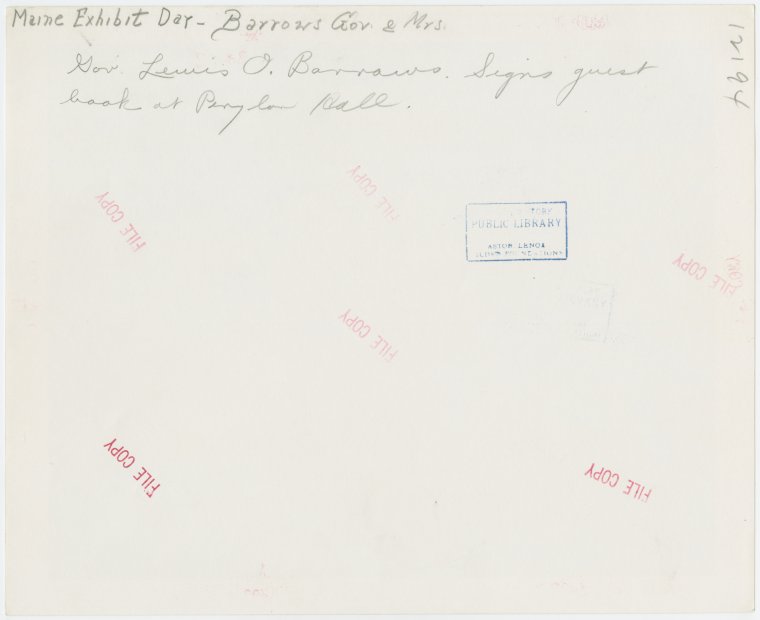 Maine Exhibit Day - Barrows Gov. & Mrs.
12194
Gov. Lewis O. Barrows. Signs guest
book at Perylon Hall.
FILE COPY
FILE COPY
PUBLIC LIBRARY
ASTOR, LENOX
FILE COPY
FILE COPY
FILE COPY
FILE COPY